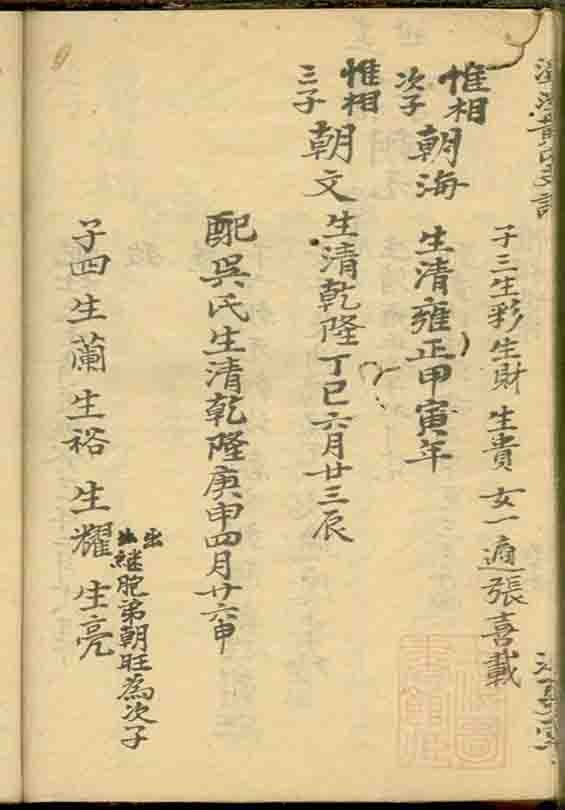 子三生彩生財生貴 女一適張喜載
惟相
次子
朝海 生清雍正甲寅年
惟相
三子
朝文 生清乾隆丁巳六月廿三辰
配吳氏生清乾隆庚申四月廿六申
子四生蘭生裕生耀生亮
出繼胞弟朝旺為次子